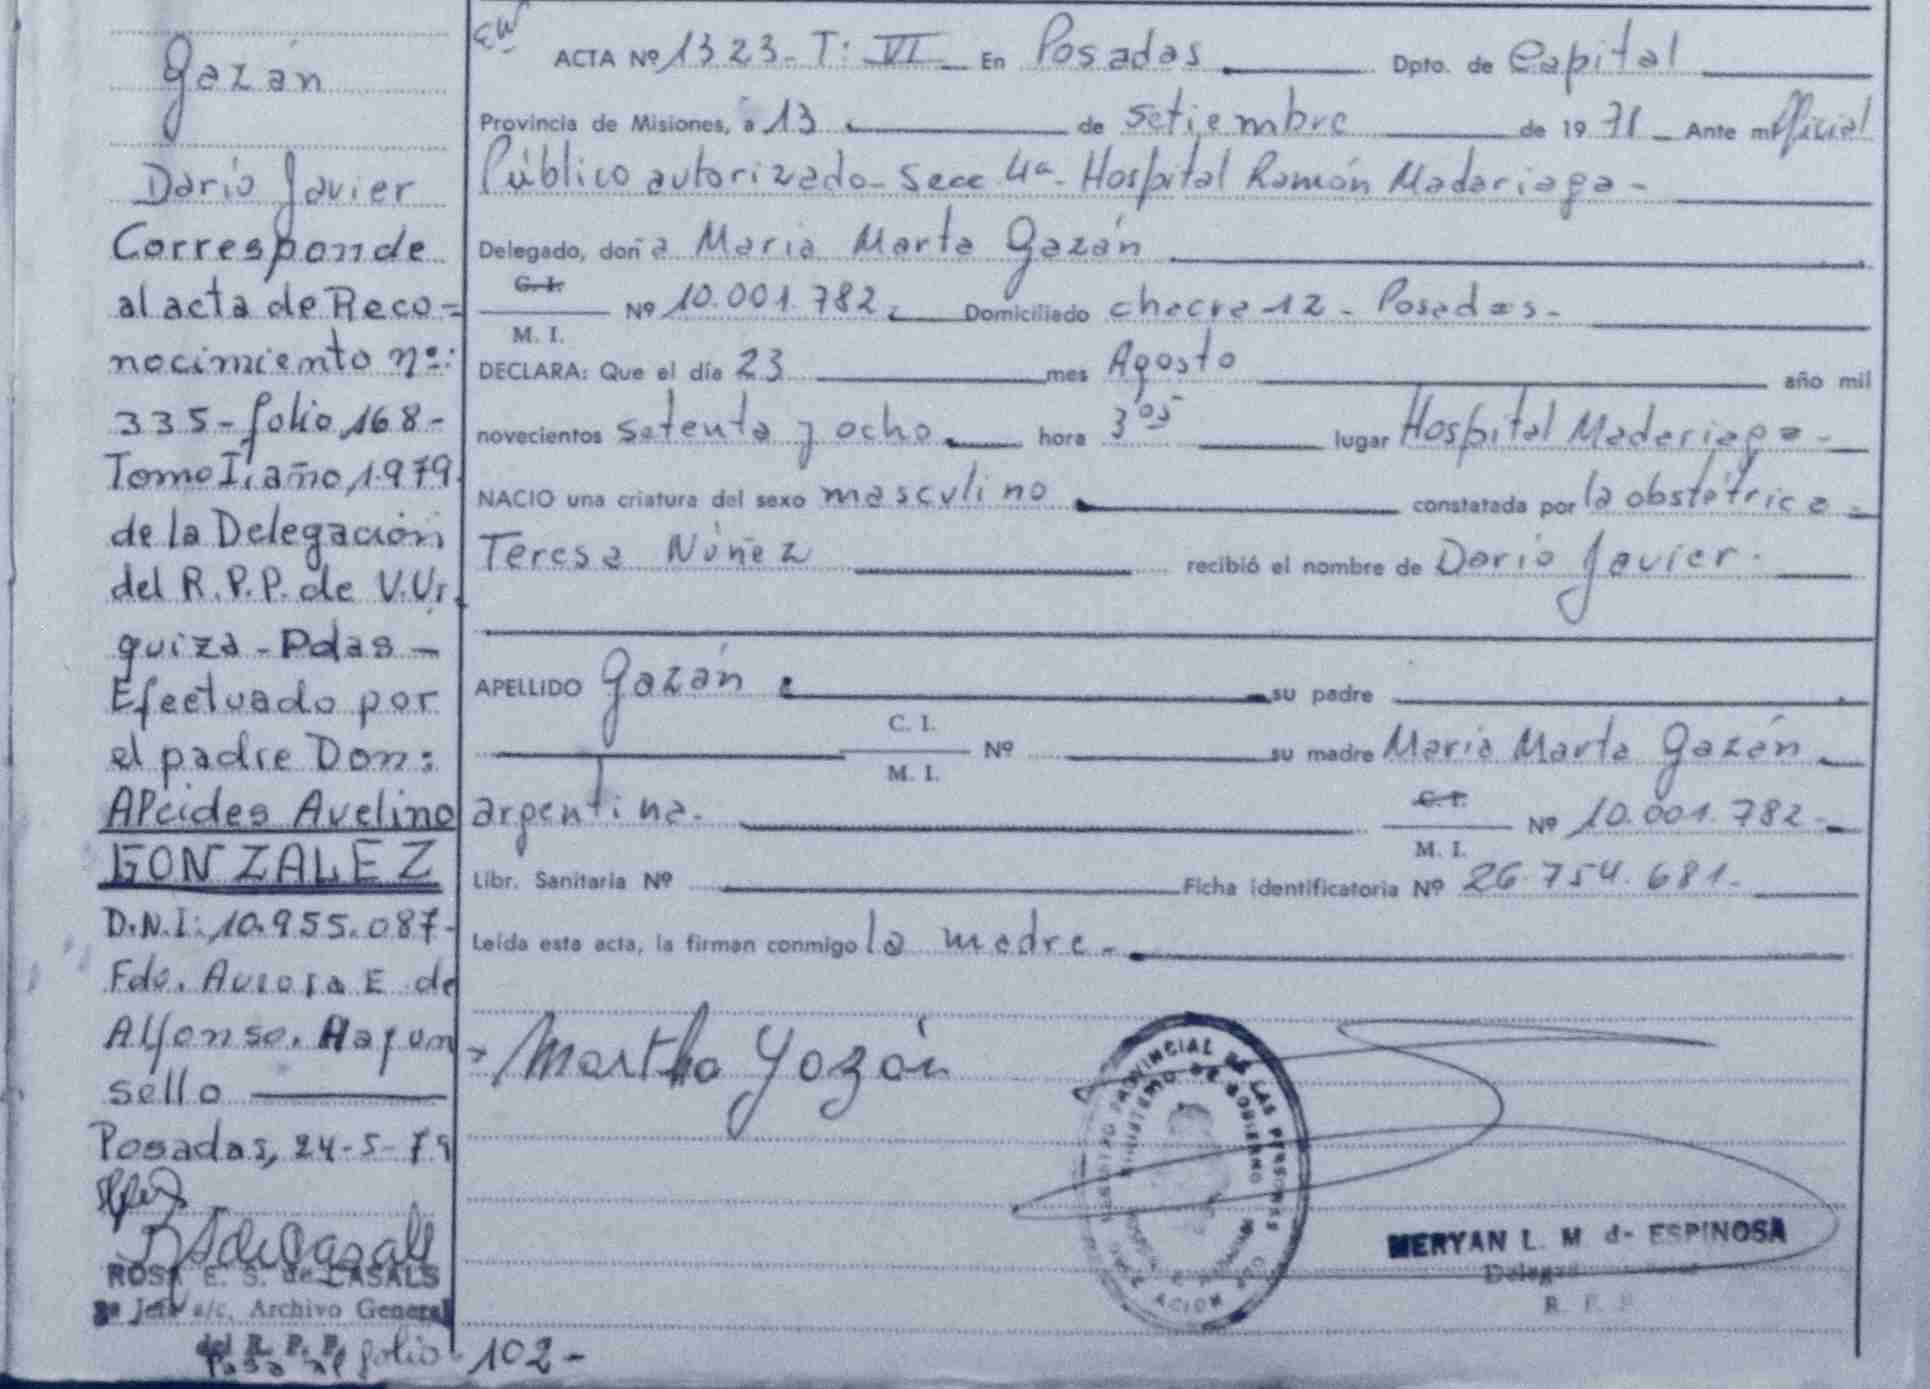 Gazán
Dario Javier
Corresponde
al acta de Reco=
nocimiento nº:
335-folio 168-
Tomo I, año 1.979
de la Delegación
del R.P.P. de V.Ur
quiza - Pdas -
Efectuado por
el padre Don:
Alcides Avelino
GONZALEZ
D.N.I: 10.955.087-
Fdo. Aurora E. de
Alfonso. Hay un
sello
Posadas, 24-5-79
ROSA E. S. de CASALS
Jefe a/c. Archivo General
del R. P. P.
Pasa al folio 102-
ACTA Nº 1323- T: VI En Posadas Dpto. de Capital
Provincia de Misiones, a 13 de setiembre de 1971 Ante mí Oficial
Público autorizado- Secc 4ª- Hospital Ramón Madariaga-
Delegado, doña Maria Marta Gazán
C. I.
M. I. Nº 10.001.782 Domiciliado chacra 12 - Posadas-
DECLARA: Que el día 23 mes Agosto año mil
novecientos setenta y ocho hora 3 05 lugar Hospital Maderiaga-
NACIO una criatura del sexo masculino constatada por la obstétrica-
Teresa Núñez recibió el nombre de Dario Javier.
APELLIDO Gazán su padre
C. I.
M. I. Nº su madre Maria Marta Gazán
argentina. C. I.
M. I. Nº 10.001.782-
Libr. Sanitaria Nº Ficha identificatoria Nº 26.754.681-
Leída esta acta, la firman conmigo la madre-
Martha Gazán
REGISTRO PROVINCIAL DE LAS PERSONAS
MINISTERIO DE GOBIERNO
MERYAN L. M de ESPINOSA
R. P. P.